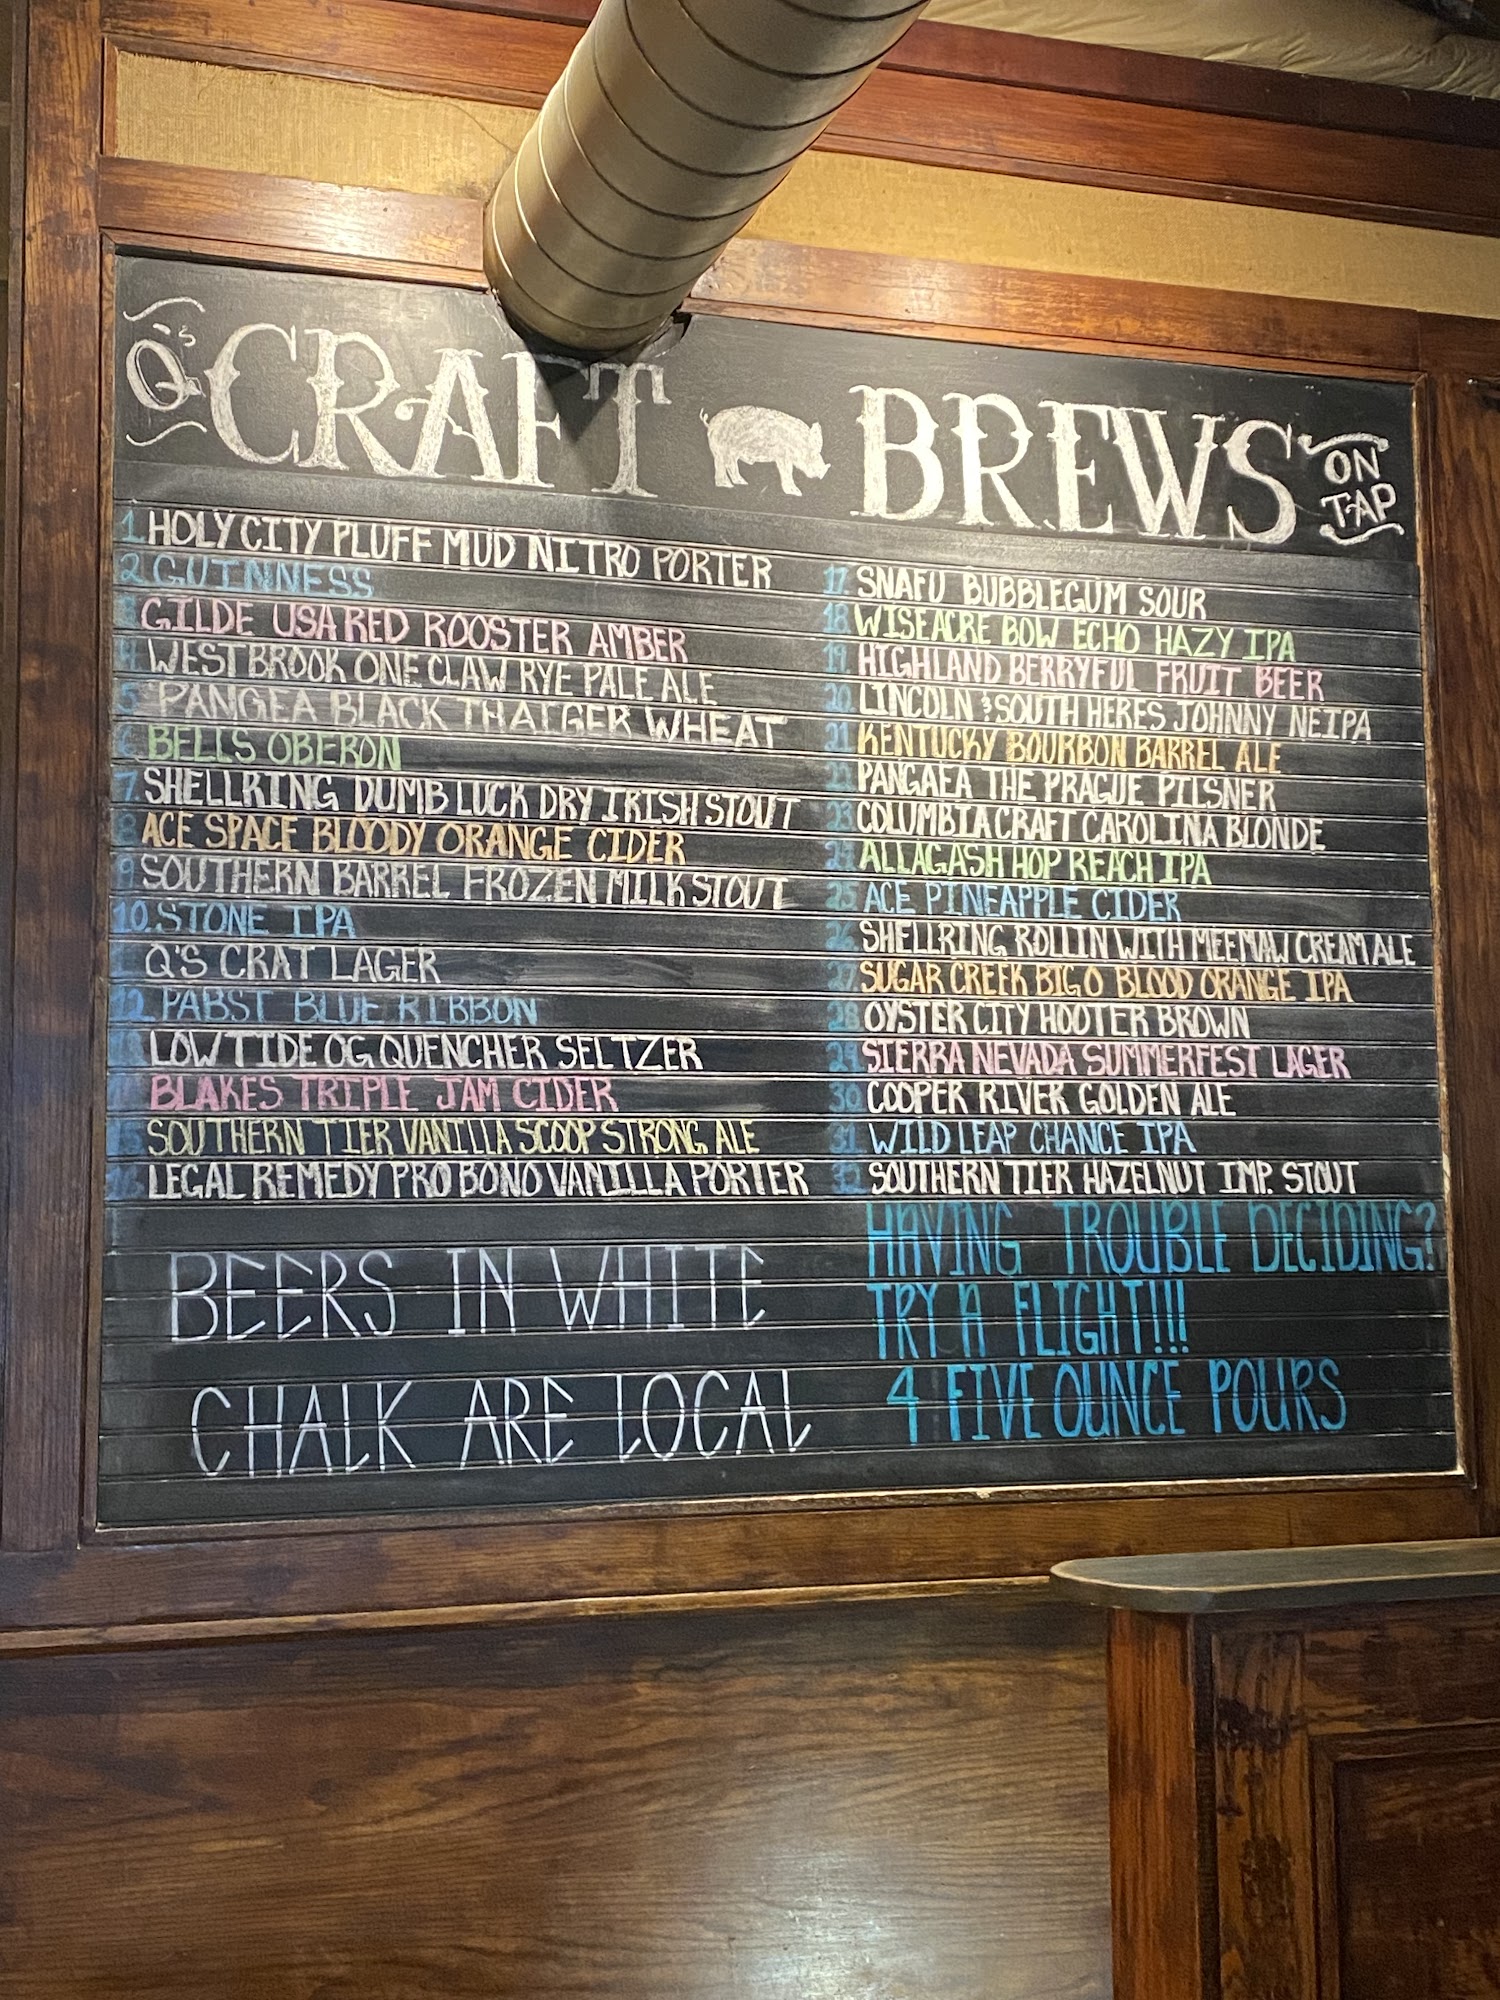 Q's CRAFT BREWS ON TAP
1. HOLY CITY PLUFF MUD NITRO PORTER
2. GUINNESS
3. GILDE USA RED ROOSTER AMBER
4. WESTBROOK ONE CLAW RYE PALE ALE
5. PANGEA BLACK THAIGER WHEAT
6. BELLS OBERON
7. SHELLRING DUMB LUCK DRY IRISH STOUT
8. ACE SPACE BLOODY ORANGE CIDER
9. SOUTHERN BARREL FROZEN MILK STOUT
10. STONE IPA
Q'S CRAT LAGER
12. PABST BLUE RIBBON
13. LOW TIDE OG QUENCHER SELTZER
14. BLAKES TRIPLE JAM CIDER
15. SOUTHERN TIER VANILLA SCOOP STRONG ALE
16. LEGAL REMEDY PRO BONO VANILLA PORTER
BEERS IN WHITE
CHALK ARE LOCAL
17. SNAFU BUBBLEGUM SOUR
18. WISEACRE BOW ECHO HAZY IPA
19. HIGHLAND BERRYFUL FRUIT BEER
20. LINCOLN & SOUTH HERES JOHNNY NEIPA
21. KENTUCKY BOURBON BARREL ALE
22. PANGAEA THE PRAGUE PILSNER
23. COLUMBIA CRAFT CAROLINA BLONDE
24. ALLAGASH HOP REACH IPA
25. ACE PINEAPPLE CIDER
26. SHELLRING ROLLIN WITH MEEMAW CREAM ALE
27. SUGAR CREEK BIG O BLOOD ORANGE IPA
28. OYSTER CITY HOOTER BROWN
29. SIERRA NEVADA SUMMERFEST LAGER
30. COOPER RIVER GOLDEN ALE
31. WILD LEAP CHANCE IPA
32. SOUTHERN TIER HAZELNUT IMP. STOUT
HAVING TROUBLE DECIDING?
TRY A FLIGHT!!!
4 FIVE OUNCE POURS